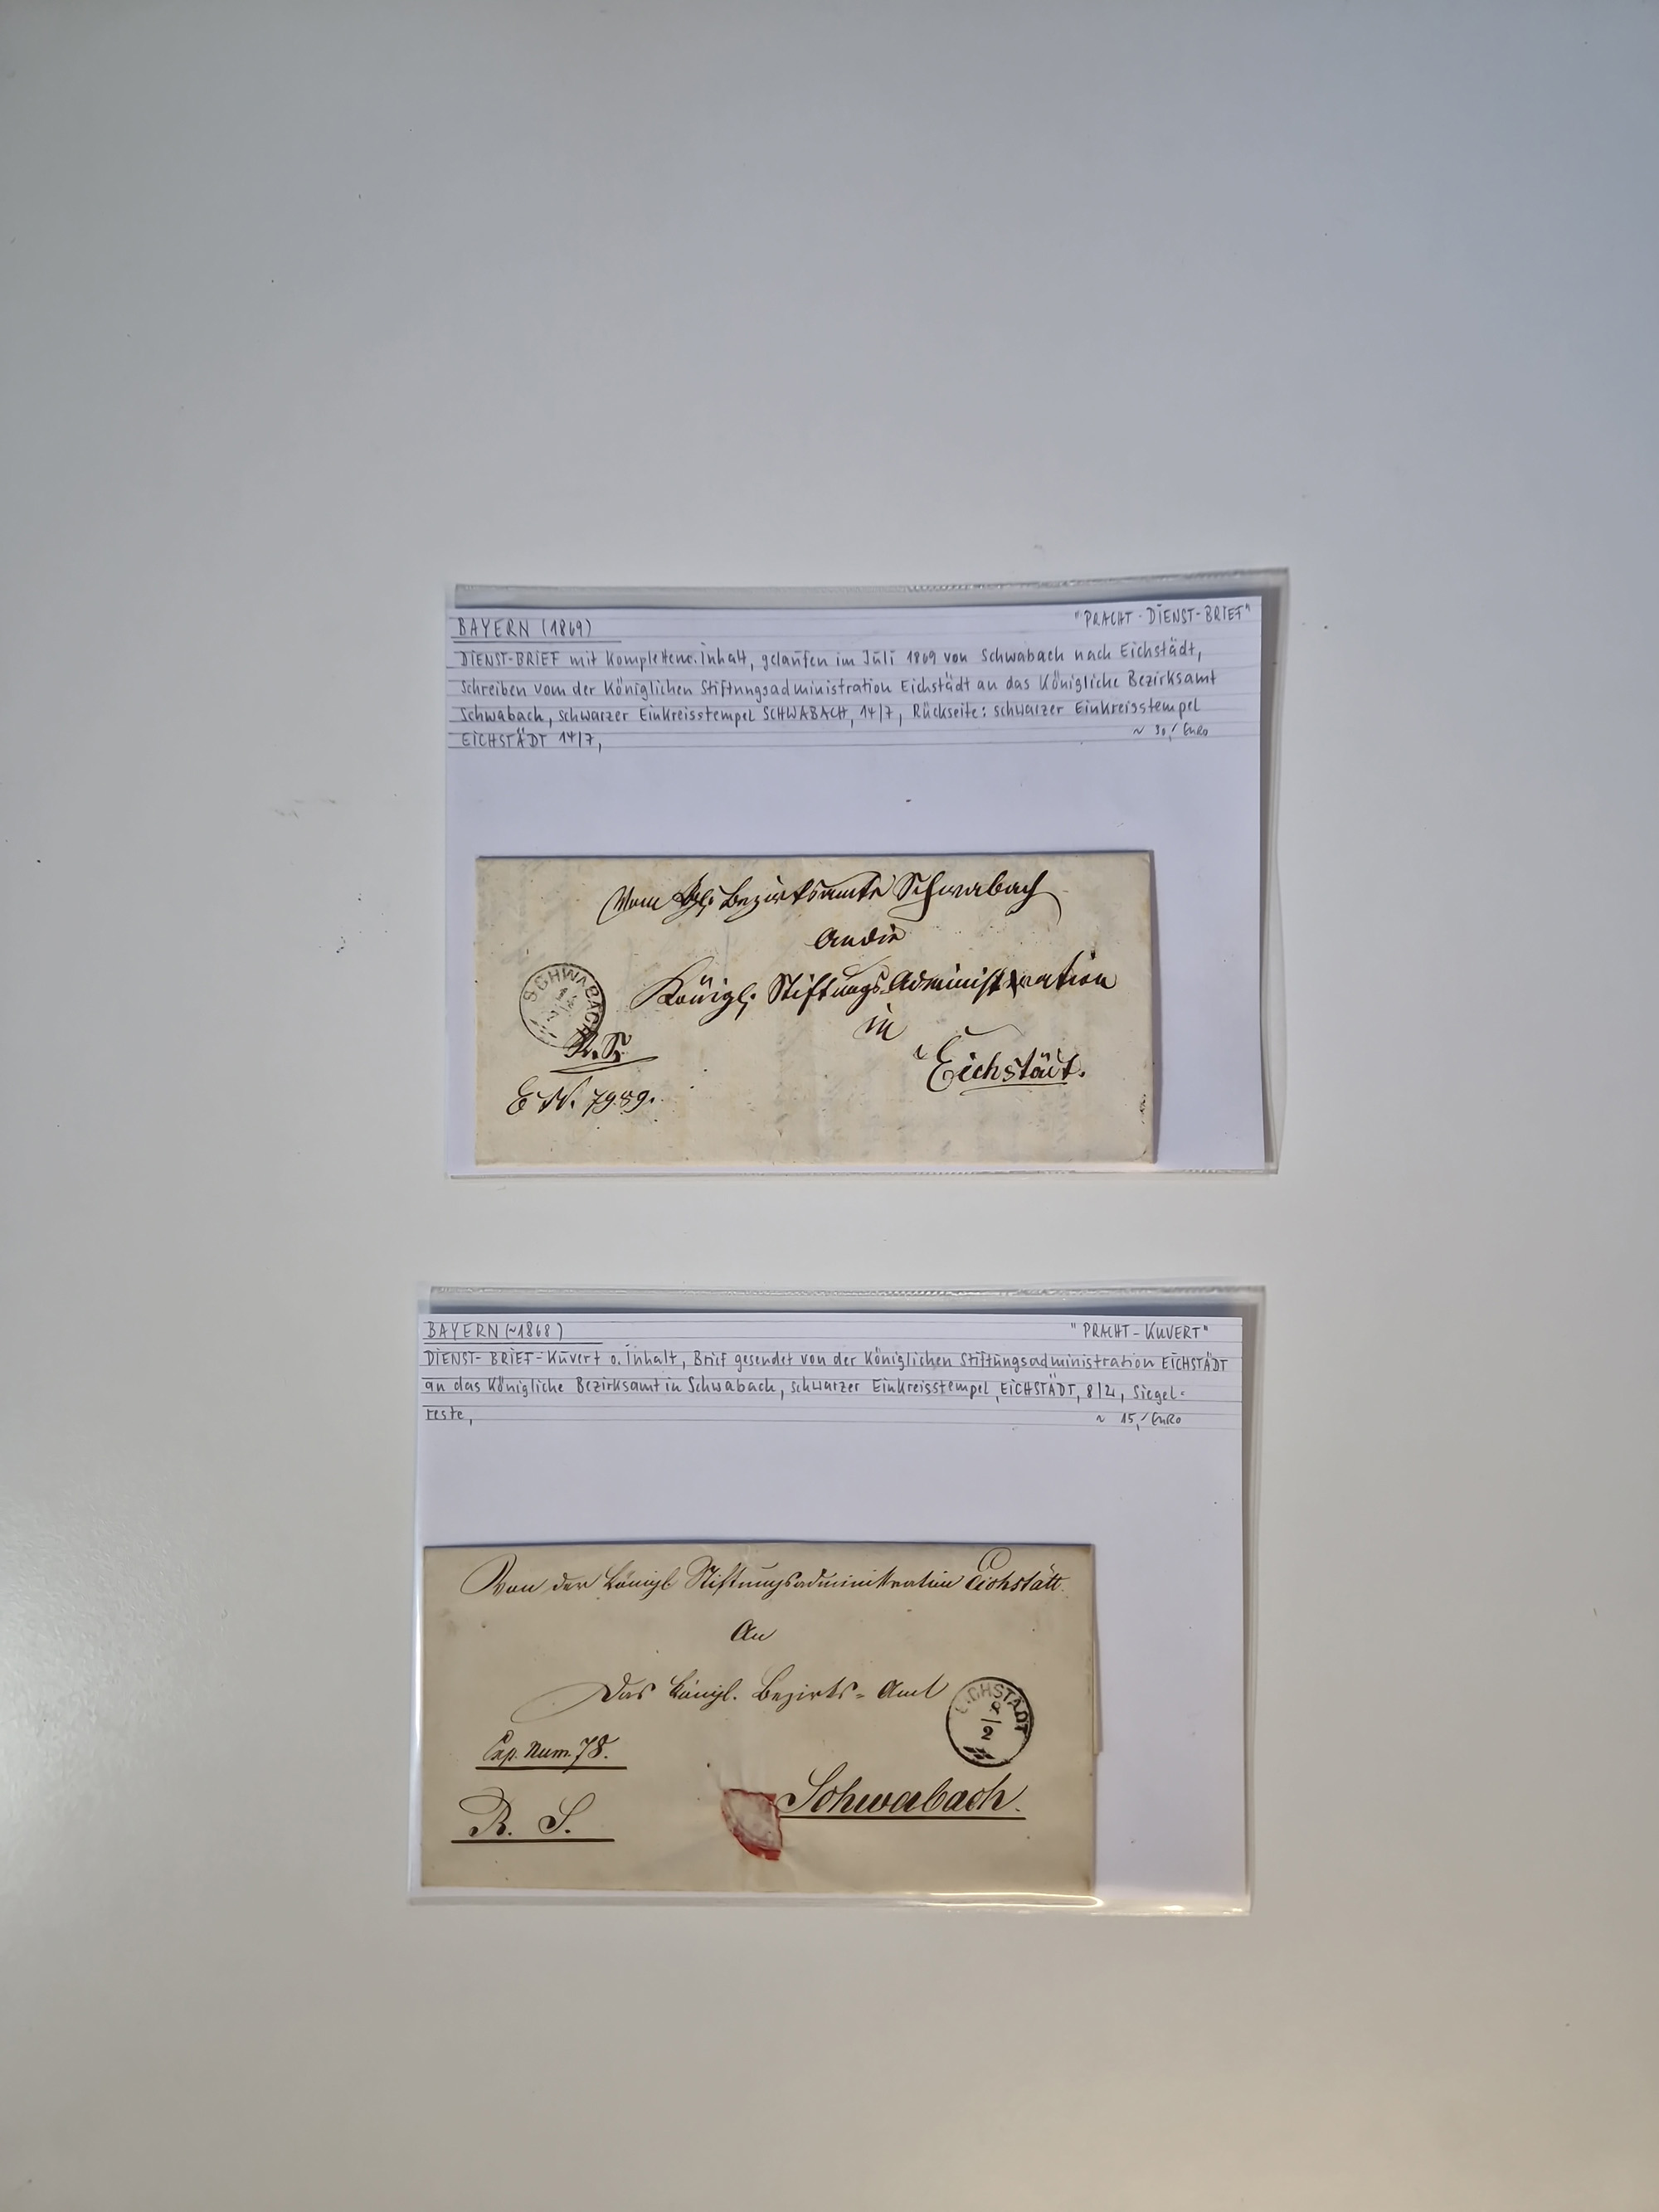 BAYERN (1869)
"PRACHT-DIENST-BRIEF"
DIENST-BRIEF mit Komplettenr. Inhalt, gelaufen im Juli 1869 von Schwabach nach Eichstädt,
Schreiben vom der Königlichen Stiftungsadministration Eichstädt an das Königliche Bezirksamt
Schwabach, schwarzer Einkreisstempel SCHWABACH, 14/7, Rückseite: schwarzer Einkreisstempel
EICHSTÄDT 14/7,
~ 30,- Euro
Vom Kgl. Bezirksamte Schwabach
An die
Königl. Stiftungs Administration
in
Eichstädt.
SCHWABACH
R. S.
E N. 7989.
BAYERN (~1868)
"PRACHT-KUVERT"
DIENST-BRIEF-Kuvert o. Inhalt, Brief gesendet von der Königlichen Stiftungsadministration EICHSTÄDT
an das Königliche Bezirksamt in Schwabach, schwarzer Einkreisstempel, EICHSTÄDT, 8/2, Siegel-
reste,
~ 15,- Euro
Von der Königl Stiftungsadministration Eichstätt.
An
Das Königl. Bezirks-Amt
EICHSTÄDT
8/2
Exp. Num. 78.
Schwabach.
R. S.